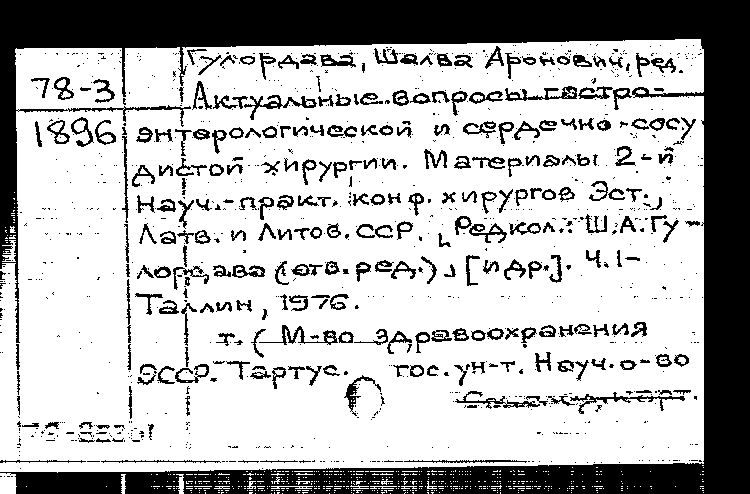 Гулордава, Шалва Аронович, ред.
78-3
Актуальные вопросы гастро-
1896 энтерологической и сердечно-сосу
дистой хирургии. Материалы 2-й
Науч.-практ. конф. хирургов Эст.,
Латв. и Литов. ССР. Редкол.: Ш.А.Гу-
лордава (отв.ред.), [и др.]. Ч.1-
Таллин, 1976.
т. (М-во здравоохранения
ЭССР. Тартус. гос.ун-т. Науч.о-во